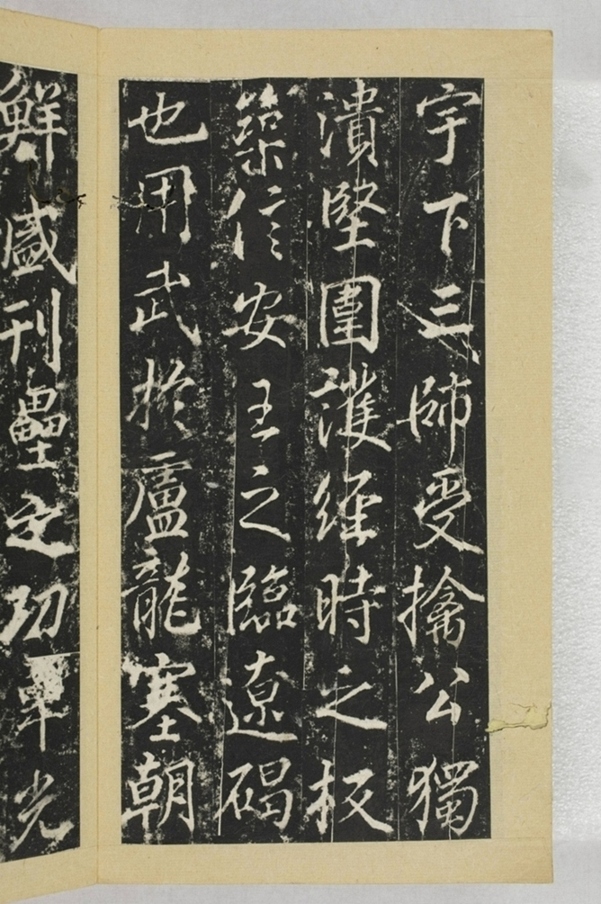 宇下三師受擒公獨
潰堅圍護維時之板
築信安王之臨遼碣
也用武於盧龍塞朝
鮮盛刊壘功光